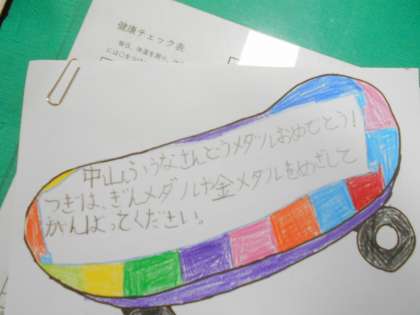 健康チェック表
毎日、体温を測り、
には○を
中山ふうなさんどうメダルおめでとう!
つぎは、ぎんメダルや金メダルをめざして
がんばってください。